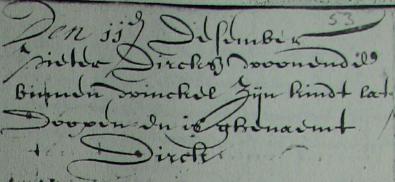 53
Den iij Desember
pieter Dircks woonende
binnen winckel Zijn kindt lat
Doopen en is ghenaemt
Dirck